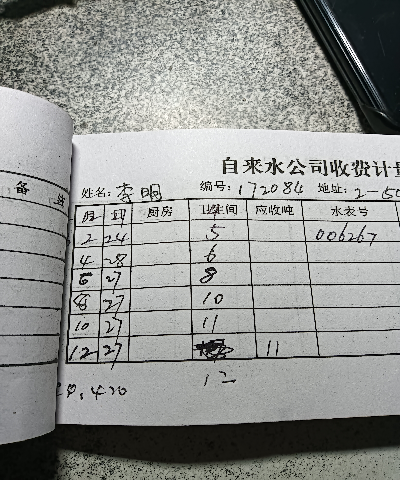 备
自来水公司收费计量
姓名：李明 编号：172084 地址：2-50
月 日 厨房 卫生间 应收吨 水表号
2 24 5 006267
4 28 6
6 27 8
8 27 10
10 27 11
12 27 11
12